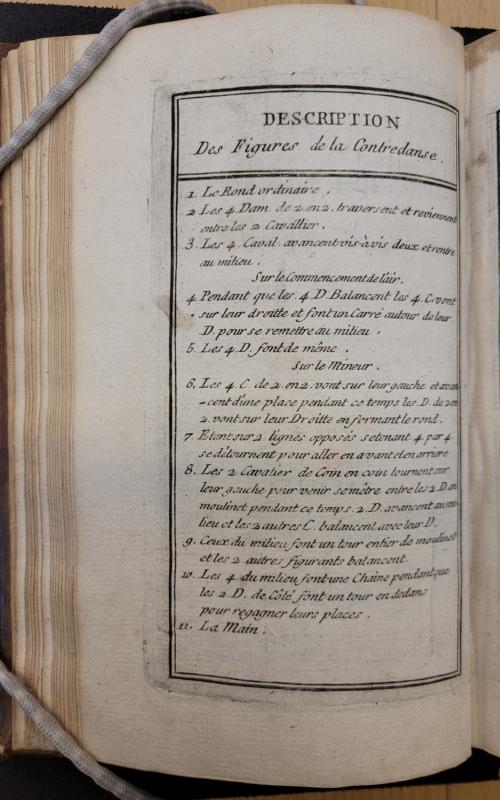 DESCRIPTION
Des Figures de la Contredanse.
1. Le Rond ordinaire.
2. Les 4. Dam. de 2. en 2. traversent et reviennent
entre les 2 Cavallier.
3. Les 4. Caval. avancent vis-à vis deux et rentre
au milieu.
Sur le Commencement de l'air.
4. Pendant que les. 4. D. Balancent les 4. C. vont
sur leur droitte et font un Carré autour de leur
D. pour se remettre au milieu.
5. Les 4. D. font de même.
Sur le Mineur.
6. Les 4. C. de 2. en 2. vont sur leur gauche et avan-
-cent d'une place pendant ce temps les D. de 2 en
2. vont sur leur Droitte en formant le rond.
7. Etant sur 2. lignes opposés se tenant 4. par 4.
se détournent pour aller en avant et en arriere
8. Les 2 Cavalier de Coin en coin tournent sur
leur gauche pour venir se mêtre entre les 2 D. en
moulinet pendant ce temps. 2. D. avancent au mi-
lieu et les 2 autres C. balancent avec leur D.
9. Ceux du milieu font un tour entier de moulinet
et les 2 autres figurants balancent.
10. Les 4. du milieu font une Chaine pendant que
les 2. D. de Côté font un tour en dedans
pour regagner leurs places.
11. La Main.